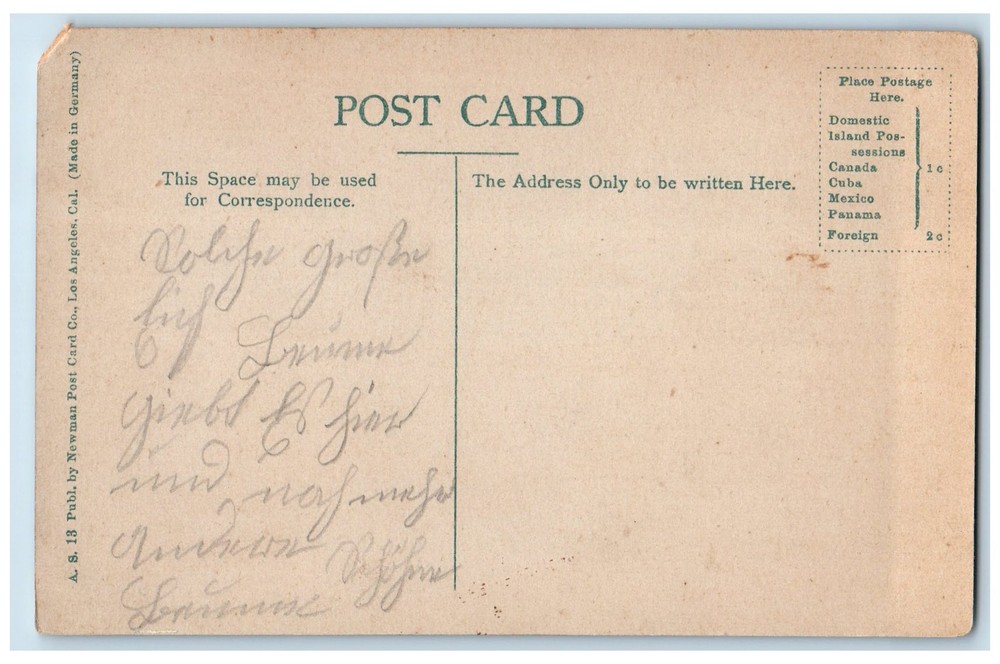 POST CARD
This Space may be used
for Correspondence.
The Address Only to be written Here.
Place Postage
Here.
Domestic
Island Pos-
sessions
Canada
Cuba
Mexico
Panama
1c
Foreign 2c
A. S. 13 Publ. by Newman Post Card Co., Los Angeles, Cal. (Made in Germany)
Solche große
Eich
Beume
giebt Es hier
und noch mehr
Andere Schöhne
Beume